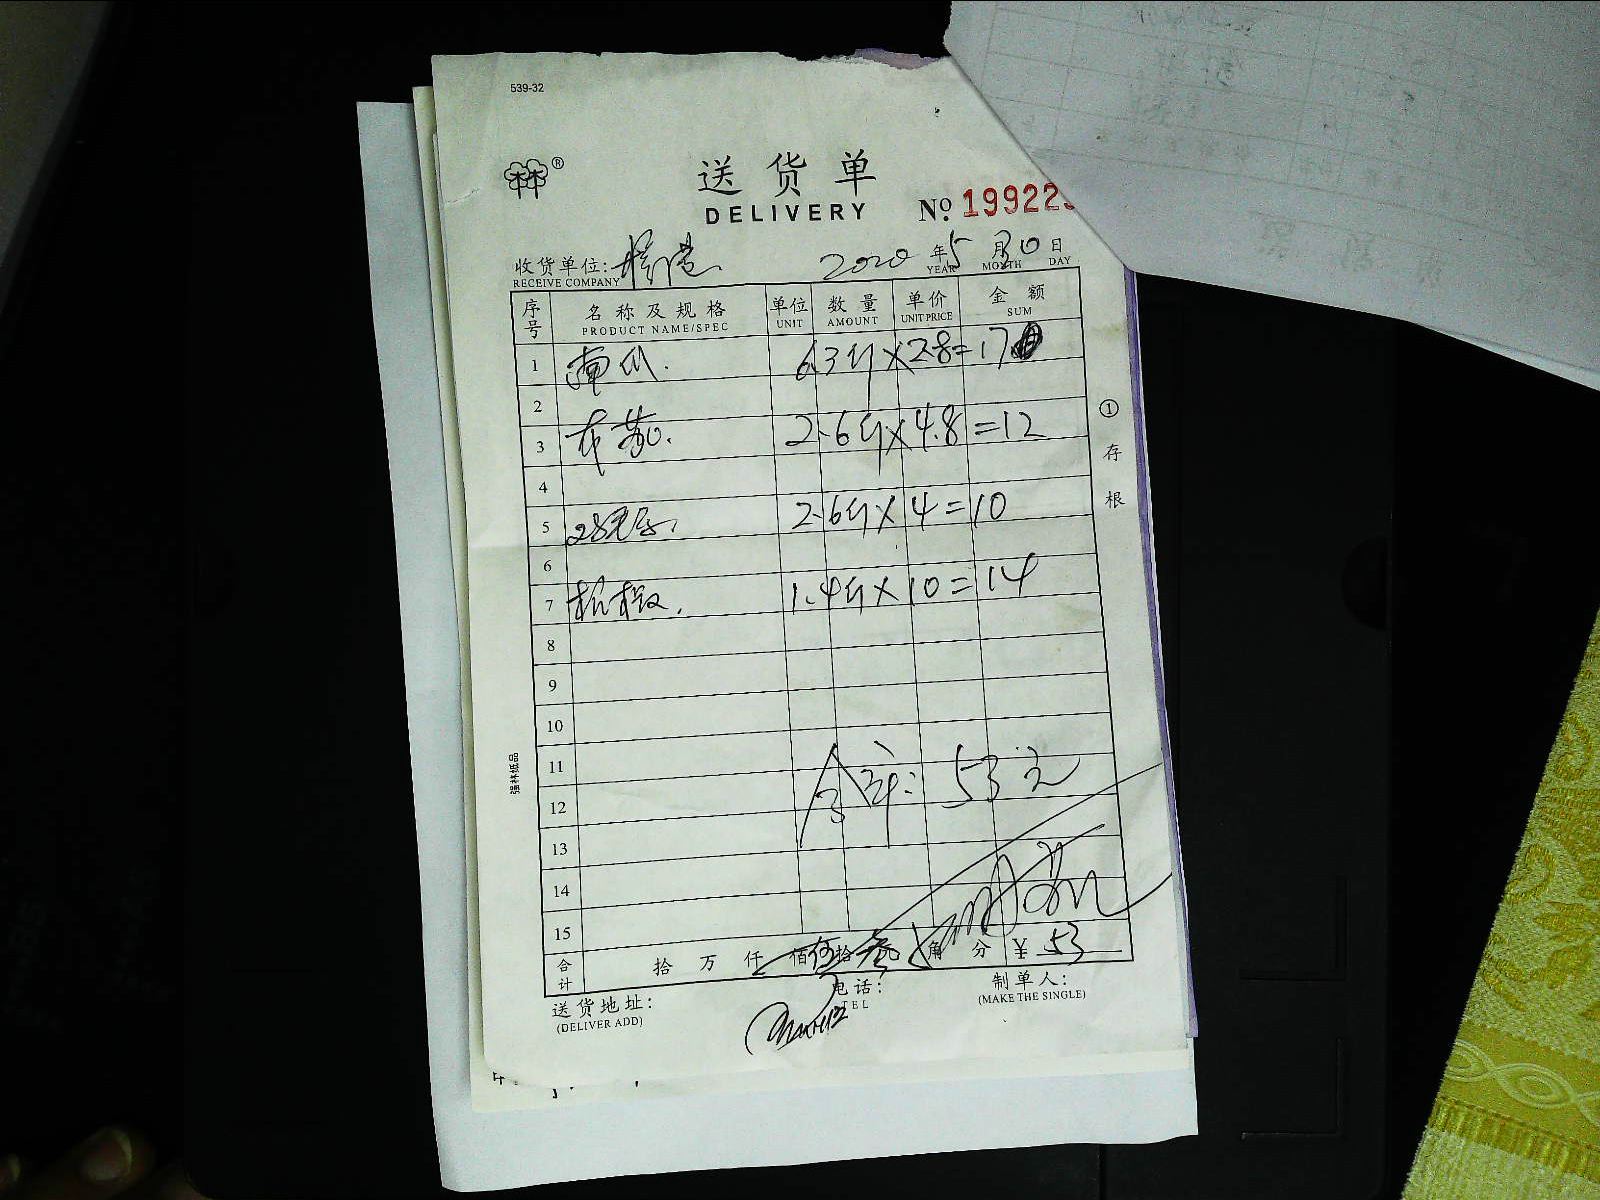 539-32
林®
送货单
DELIVERY
№ 199223
收货单位: 2020 年 5 月 30 日
RECEIVE COMPANY YEAR MONTH DAY
序号 名称及规格 单位 数量 单价 金额
PRODUCT NAME/SPEC UNIT AMOUNT UNIT PRICE SUM
1 南瓜. 6.3斤×2.8=17
2
3 2.6斤×4.8=12
4
5 2.6斤×4=10
6
7 杭椒. 1.4斤×10=14
8
9
10
11
12 合计: 53元
13
14
15
合计 拾 万 仟 佰 伍拾 叁元 角 分 ¥ 53
送货地址: 电话: 制单人:
(DELIVER ADD) TEL (MAKE THE SINGLE)
① 存根
强林纸品